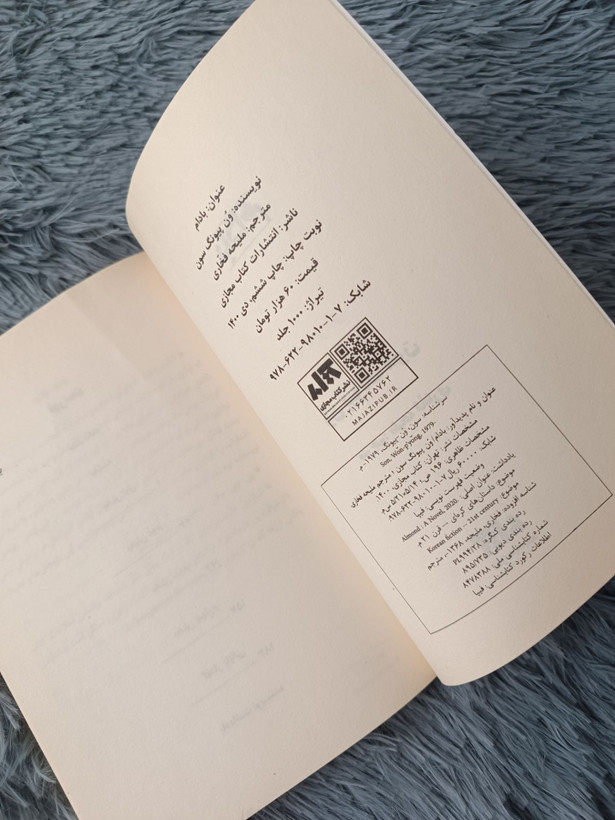 عنوان: بادام
نویسنده: وُن پیونگ سون
مترجم: ملیحه فخاری
ناشر: انتشارات کتاب مجازی
نوبت چاپ: چاپ ششم، دی ۱۴۰۰
قیمت: ۶۰ هزار تومان
تیراژ: ۱۰۰۰ جلد
شابک: ۷-۱-۹۸۰۱۰-۶۲۲-۹۷۸
نشر کتاب مجازی
۰۲۱۶۶۳۴۵۷۶۲
MAJAZIPUB.IR
سرشناسه: سون، وُن پیونگ، ۱۹۷۹ م.
Son, Wŏn-p'yŏng, 1979
عنوان و نام پدیدآور: بادام/ وُن پیونگ سون؛ مترجم ملیحه فخاری
مشخصات نشر: تهران: کتاب مجازی، ۱۴۰۰
مشخصات ظاهری: ۱۹۶ ص؛ ۱۴/۵×۲۱/۵ س‌م
شابک: ۶۰۰۰۰۰ ریال ۷-۱-۹۸۰۱۰-۶۲۲-۹۷۸
وضعیت فهرست نویسی: فیپا
یادداشت: عنوان اصلی: Almond : A Novel, 2020.
موضوع: داستان‌های کره‌ای -- قرن ۲۱ م
موضوع: Korean fiction -- 21st century
شناسه افزوده: فخاری، ملیحه، ۱۳۶۸-، مترجم
رده بندی کنگره: PL۹۹۴/۳۸
رده بندی دیویی: ۸۹۵/۷۳۵
شماره کتابشناسی ملی: ۸۴۷۸۳۸۸
اطلاعات رکورد کتابشناسی: فیپا